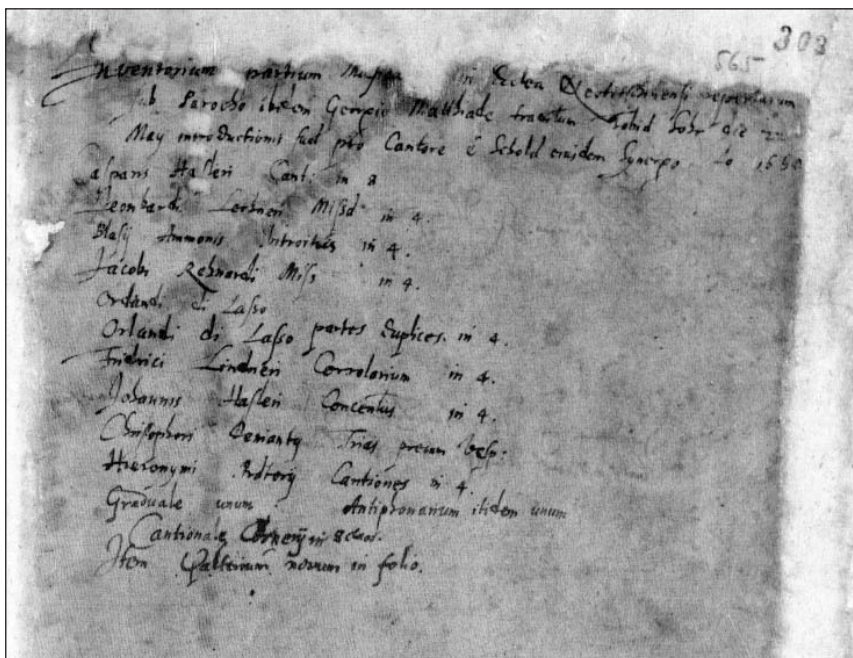 303
565
Inventorium partium Musica in
ab Parocho ibidem Georgio Matthiade tractum
May introductionis sua pro Cantore e Schola eiusdem
Casparis Hasleri Cant: in 8
Leonhardi Lechneri Missa in 4.
Blasij Ammonis Introitus in 4.
Jacobi Rehnardi Miss in 4.
Orlandi di Lasso
Orlandi di Lasso partes duplices. in 4.
Fridrici Lindneri Corrolorium in 4.
Johannis Hasleri Concentus in 4.
Christophori Demanty Trias precum Vesp:
Hieronymi Cantiones in 4.
Graduale unum Antiphonarium itidem unum
Cantionale in
Item Psalterium novum in folio.